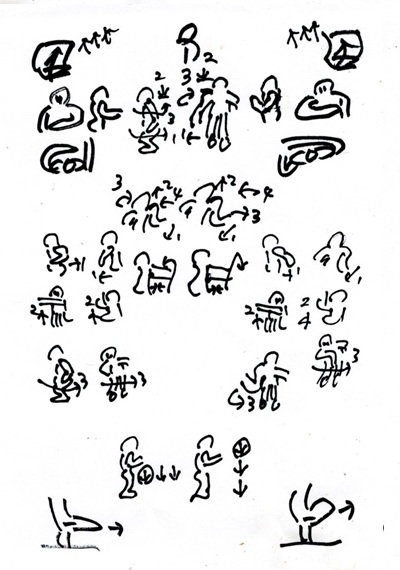 2
2 3
3
1
3 2 4 2 4
3
1 1
1 1
1 1
2 2 2 2
4
3 3 3
3